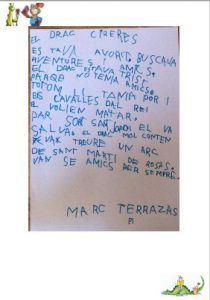 EL DRAC CIRERES
ES TAVA AVORIT. BUSCAVA
AVENTURES I AMICS.
EL DRAC ESTAVA TRIST
PARQE NO TENIA AMICS.
TOTOM LI TANIA POR I
ES CAVALLES DAL REI
EL VOLIEN MATAR.
PAR SOR SAN JORDI EL VA
SALVA. EL DRAC MOL CONTEN
VAX TREURE UN ARC
DE SANT MARTI DE ROSES.
VAN SE AMICS PER SEMPRE.
MARC TERRAZAS